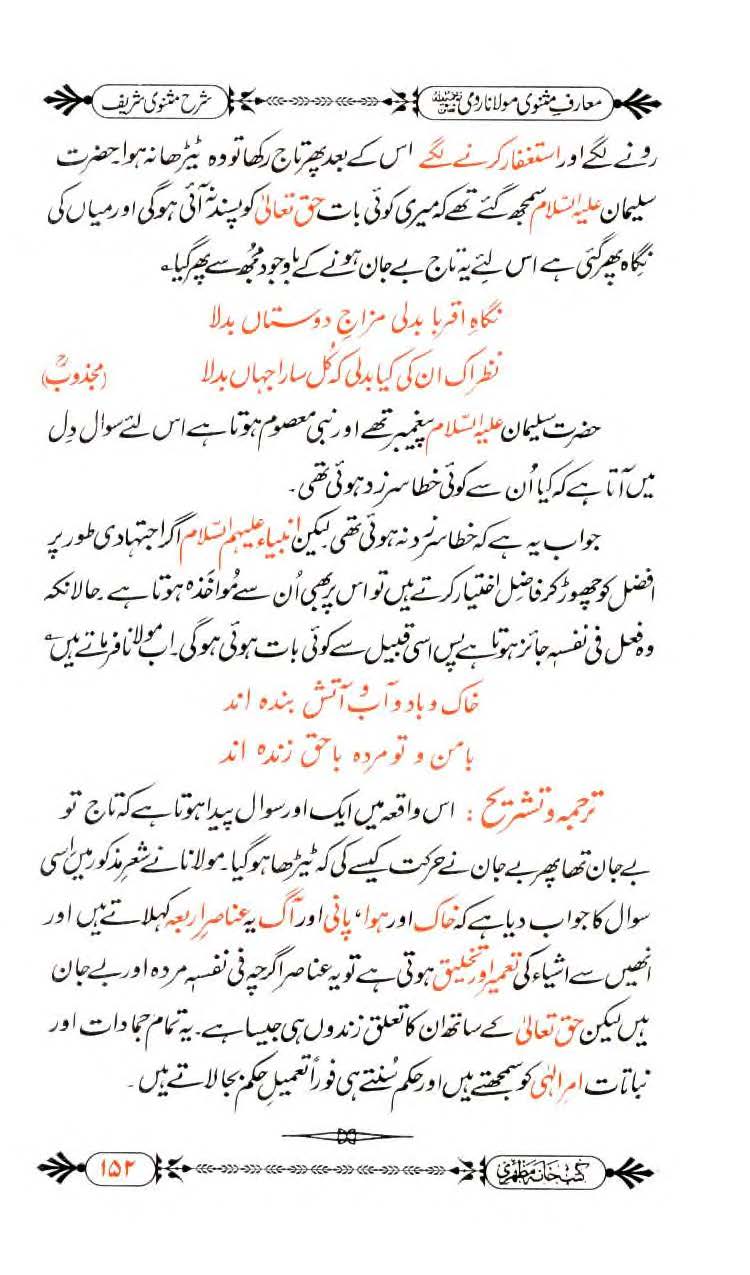 معارفِ مثنوی مولانا رومی رحمۃ اللہ علیہ
شرح مثنوی شریف
رونے لگے اور استغفار کرنے لگے اس کے بعد پھر تاج رکھا تو وہ ٹیڑھا نہ ہوا۔ حضرت
سلیمان علیہ السّلام سمجھ گئے تھے کہ میری کوئی بات حق تعالیٰ کو پسند نہ آئی ہوگی اور میاں کی
نگاہ پھر گئی ہے اس لئے یہ تاج بے جان ہونے کے باوجود مجھ سے پھر گیا؎
نگاہِ اقربا بدلی مزاجِ دوستاں بدلا
نظر اک ان کی کیا بدلی کہ کُل سارا جہاں بدلا (مجذوبؒ)
حضرت سلیمان علیہ السّلام پیغمبر تھے اور نبی معصوم ہوتا ہے اس لئے سوال دل
میں آتا ہے کہ کیا اُن سے کوئی خطا سرزد ہوئی تھی۔
جواب یہ ہے کہ خطا سرزد نہ ہوئی تھی لیکن انبیاء علیہم السّلام اگر اجتہادی طور پر
افضل کو چھوڑ کر فاضل اختیار کرتے ہیں تو اس پر بھی اُن سے مُواخَذہ ہوتا ہے۔ حالانکہ
وہ فعل فی نفسہٖ جائز ہوتا ہے پس اسی قبیل سے کوئی بات ہوئی ہوگی۔ اب مولانا فرماتے ہیں؎
خاک و باد و آب و آتش بندہ اند
بامن و تو مردہ باحق زندہ اند
ترجمہ و تشریح : اس واقعہ میں ایک اور سوال پیدا ہوتا ہے کہ تاج تو
بے جان تھا پھر بے جان نے حرکت کیسے کی کہ ٹیڑھا ہوگیا۔ مولانا نے شعرِ مذکور میں اسی
سوال کا جواب دیا ہے کہ خاک اور ہوا، پانی اور آگ یہ عناصرِ اربعہ کہلاتے ہیں اور
انھیں سے اشیاء کی تعمیر اور تخلیق ہوتی ہے تو یہ عناصر اگرچہ فی نفسہٖ مردہ اور بے جان
ہیں لیکن حق تعالیٰ کے ساتھ ان کا تعلق زندوں ہی جیسا ہے۔ یہ تمام جمادات اور
نباتات امرِ الٰہی کو سمجھتے ہیں اور حکم سُنتے ہی فوراً تعمیلِ حکم بجا لاتے ہیں۔
کتب خانہ مظہری
۱۵۲